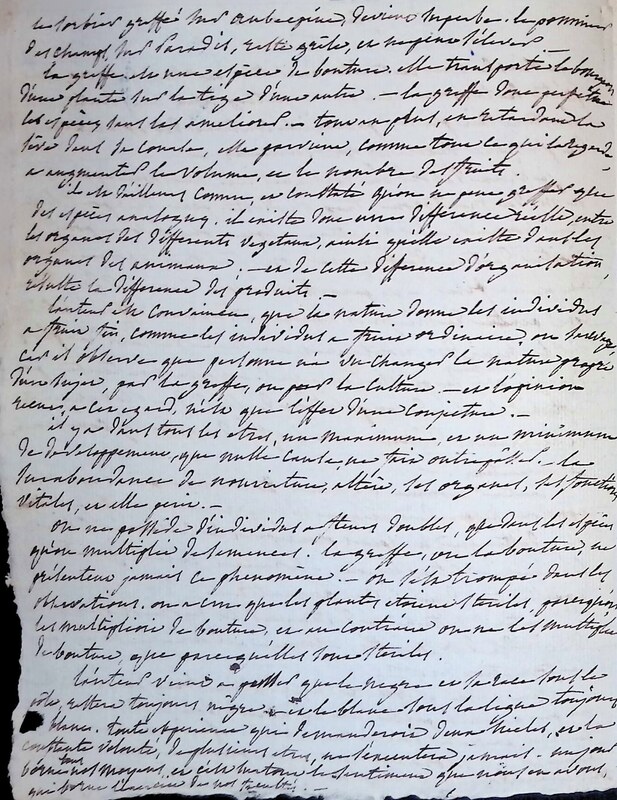 le sorbier greffé sur aubepine, devient superbe. le pommier
des champs sur Paradis, reste grêle, et ne peut s'élever —
la greffe est une espèce de bouture. elle transporte le bouton
d'une plante sur la tige d'une autre. — la greffe donc perpétue
les espèces sans les améliorer. — tout au plus, en retardant la
sève dans sa course, elle parvient, comme tout ce qui la retarde
a augmenter le volume, et le nombre des fruits.
il est d'ailleurs connu, et constaté qu'on ne peut greffer que
des espèces analogues. il existe donc une difference réelle, entre
les organes des différents vegetaux, ainsi qu'elle existe dans les
organes des animaux. — et de cette difference d'organisation,
résulte la difference des produits. —
l'auteur est convaincu, que la nature donne les individus
a fruit fin, comme les individus a fruit ordinaire, ou sauvage
car il observe que personne n'a vu changer la nature propre
d'un sujet, par la greffe, ou par la culture. — et l'opinion
recue, a cet egard, n'est que l'effet d'une conjecture. —
il y a dans tous les etres, un maximum, et un minimum
de developpement, que nulle cause ne fait outrepasser. la
surabondance de nourriture, altère, les organes, les fonctions
vitales, et elle perit. —
on ne possède d'individus a fleurs doubles, que dans les espèces
qu'on multiplie de semences. la greffe, ou la bouture, ne
présentent jamais ce phenomène. — on s'est trompé dans les
observations. on a cru que les plantes etoient steriles, parcequ'on
les multiplioit de bouture, et au contraire on ne les multiplie
de bouture, que parcequ'elles sont steriles.
l'auteur vient a penser que le negre et sa race sous le
pôle, restera toujours negre — et le blanc sous la ligne toujours
blanc. toute experience qui demanderoit deux siecles, et la
constante volonté, de plusieurs etres, ne s'executera jamais.
borne nos moyens, et c'est surtout le sentiment que nous en avons,
qui borne de nos facultés. —